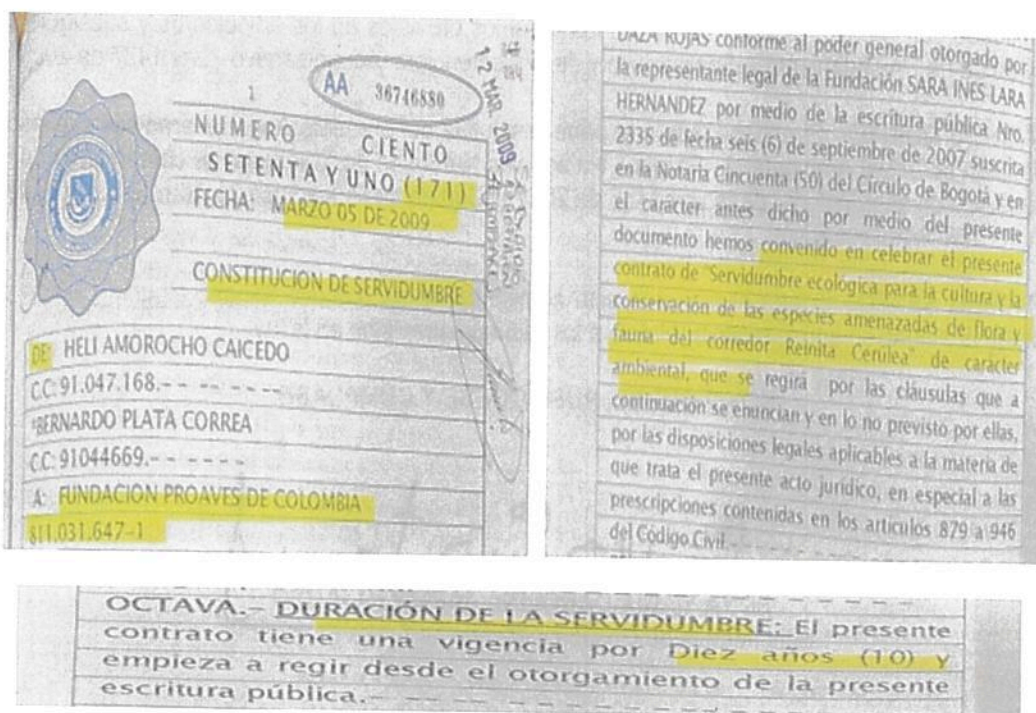 1
AA 36746880
12 MAR. 2009
NUMERO CIENTO
SETENTA Y UNO (171)
FECHA: MARZO 05 DE 2009
CONSTITUCION DE SERVIDUMBRE
DE: HELI AMOROCHO CAICEDO
C.C: 91.047.168.- - - - - - - -
*BERNARDO PLATA CORREA
C.C: 91044669.- - - - - -
A: FUNDACION PROAVES DE COLOMBIA
811.031.647-1
DAZA ROJAS conforme al poder general otorgado por
la representante legal de la Fundación SARA INES LARA
HERNANDEZ por medio de la escritura pública Nro.
2335 de fecha seis (6) de septiembre de 2007 suscrita
en la Notaria Cincuenta (50) del Círculo de Bogotá y en
el carácter antes dicho por medio del presente
documento hemos convenido en celebrar el presente
contrato de "Servidumbre ecológica para la cultura y la
conservación de las especies amenazadas de flora y
fauna del corredor Reinita Cerúlea" de carácter
ambiental, que se regirá por las cláusulas que a
continuación se enuncian y en lo no previsto por ellas,
por las disposiciones legales aplicables a la materia de
que trata el presente acto jurídico, en especial a las
prescripciones contenidas en los artículos 879 a 946
del Código Civil.- - - - - - - -
OCTAVA.- DURACIÓN DE LA SERVIDUMBRE: El presente
contrato tiene una vigencia por Diez años (10) y
empieza a regir desde el otorgamiento de la presente
escritura pública.- - - - - - - -